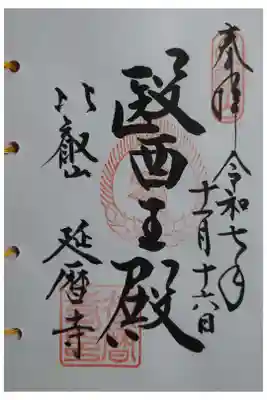 奉拝 令和七年
十一月十六日
醫王殿
比叡山 延暦寺